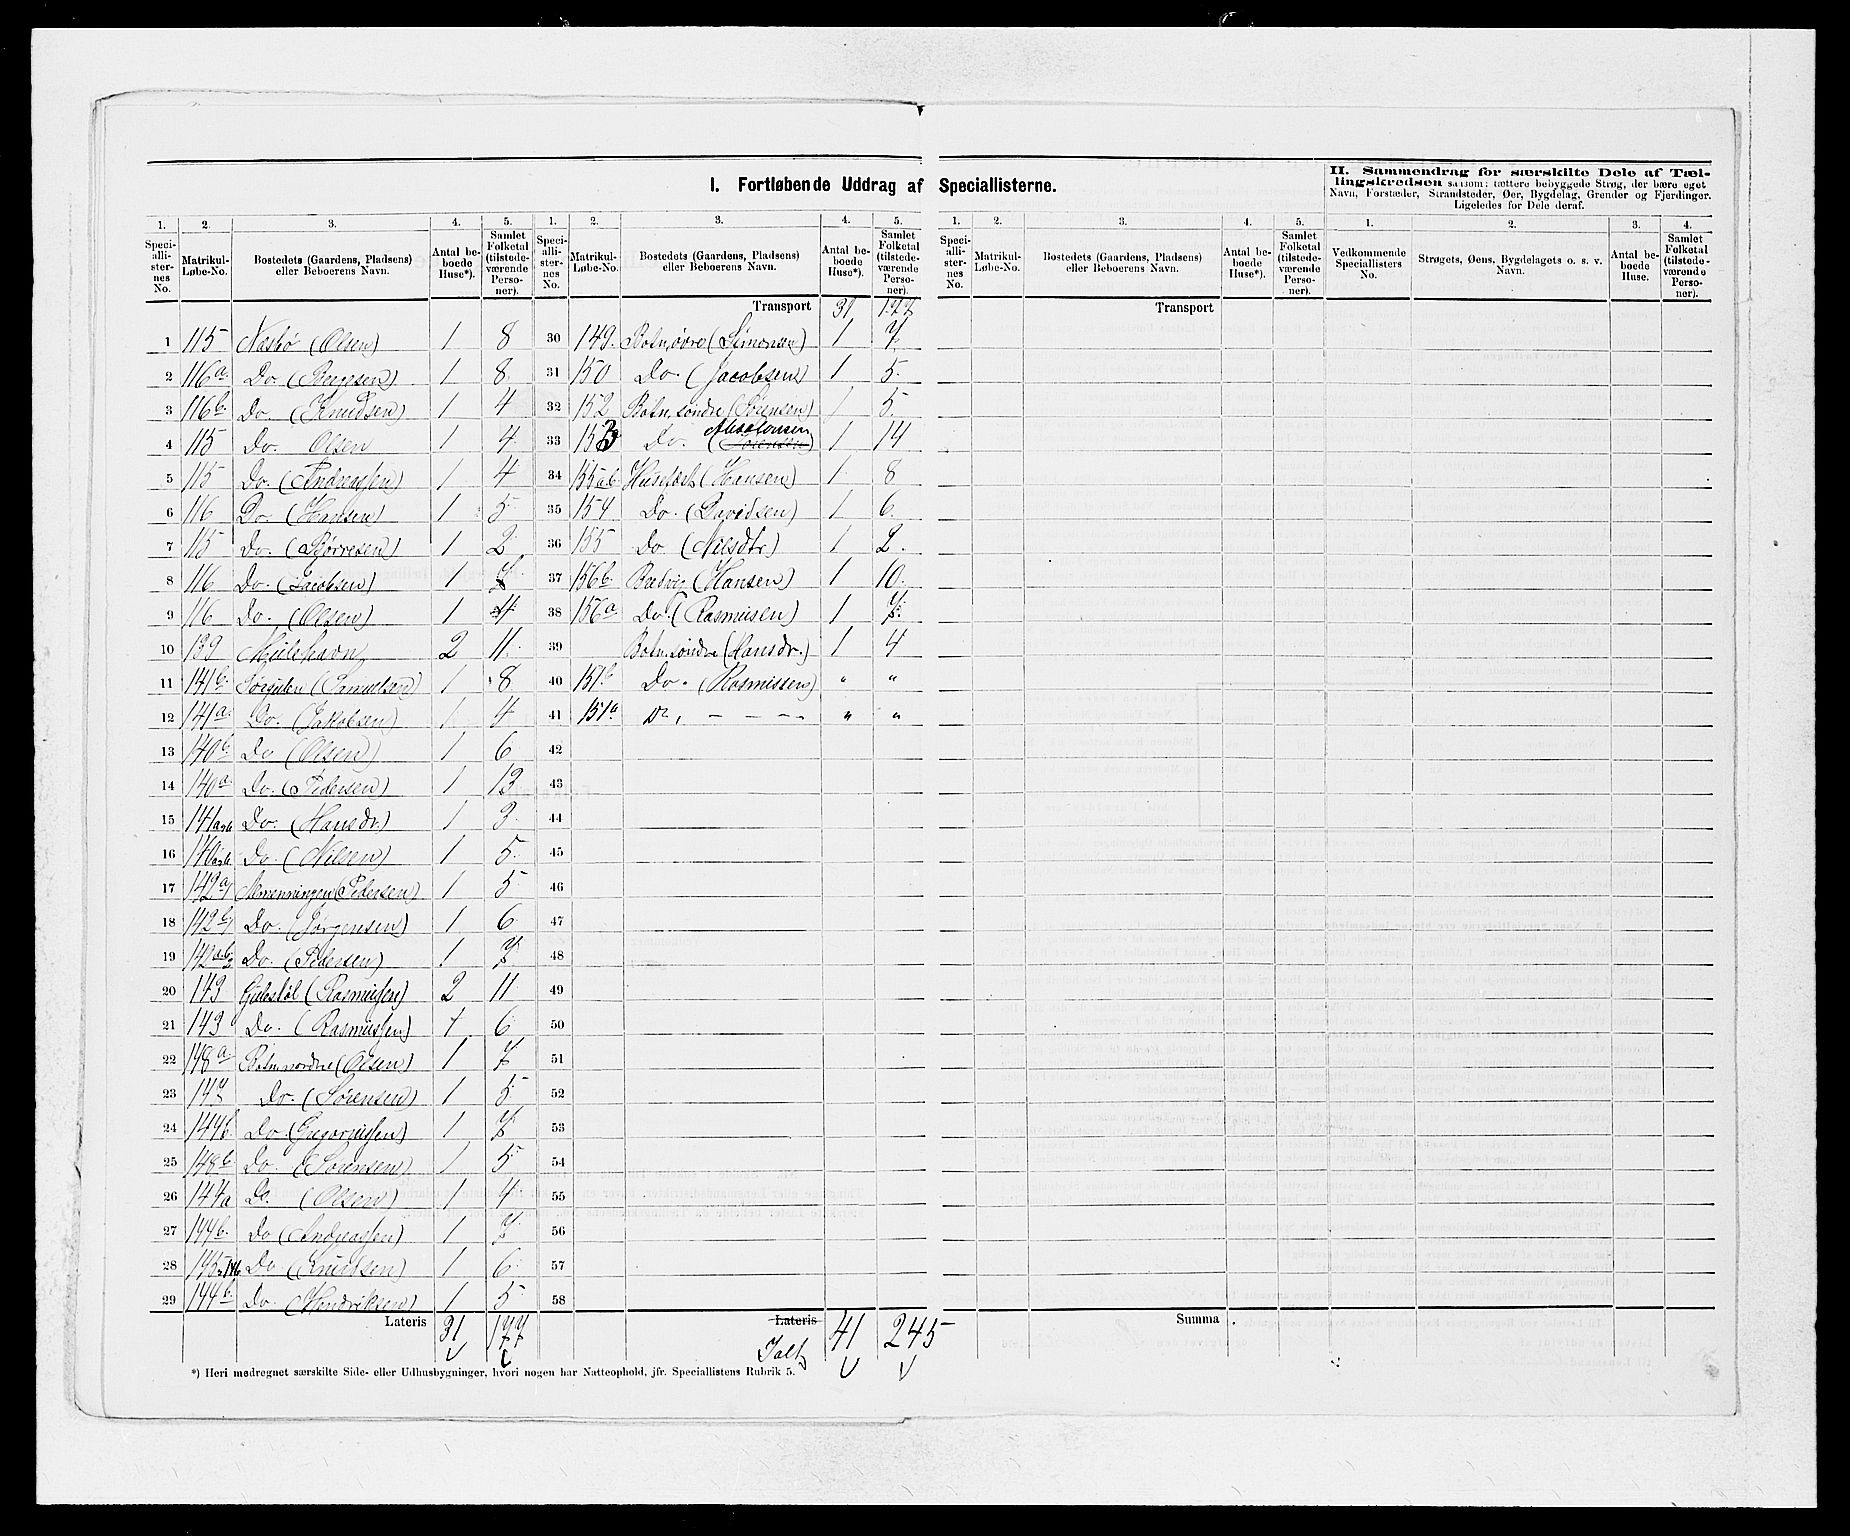 I. Fortløbende Uddrag af Speciallisterne.
II. Sammendrag for særskilte Dele af Tællingskredsen saasom: tættere bebyggede Strøg, der bære eget
Navn, Forstæder, Strandsteder, Øer, Bygdelag, Grender og Fjerdinger.
Ligeledes for Dele deraf.
1. 2. 3. 4. 5. 1. 2. 3. 4. 5. 1. 2. 3. 4. 5. 1. 2. 3. 4.
Speciallisternes No. Matrikul-Løbe-No. Bostedets (Gaardens, Pladsens) eller Beboerens Navn. Antal beboede Huse*). Samlet Folketal (tilstedeværende Personer).
Speciallisternes No. Matrikul-Løbe-No. Bostedets (Gaardens, Pladsens) eller Beboerens Navn. Antal beboede Huse*). Samlet Folketal (tilstedeværende Personer).
Speciallisternes No. Matrikul-Løbe-No. Bostedets (Gaardens, Pladsens) eller Beboerens Navn. Antal beboede Huse*). Samlet Folketal (tilstedeværende Personer).
Vedkommende Speciallisters No. Strøgets, Øens, Bygdelagets o. s. v. Navn. Antal beboede Huse. Samlet Folketal (tilstedeværende Personer).
1 115 Næsbø (Olsen) 1 8
2 116a Do. (Børgesen) 1 8
3 116b Do. (Knudsen) 1 4
4 115 Do. Olsen 1 4
5 115 Do. (Andreassen) 1 4
6 116 Do. (Hansen) 1 5
7 115 Do. (Børresen) 1 2
8 116 Do. (Jacobsen) 1 7
9 116 Do. (Olsen) 1 4
10 139 Mulehavn 2 11
11 141b Sørgulen (Samuelsen) 1 8
12 141a Do. (Jakobsen) 1 4
13 140b Do (Olsen) 1 6
14 140a Do. (Pedersen) 1 13
15 141a&b Do. (Hansdr.) 1 3
16 140a&b Do. (Nilsen) 1 5
17 142a1 Almenningen (Pedersen) 1 5
18 142b1 Do. (Jørgensen) 1 6
19 142 Do. (Pedersen) 1 7
20 143 Gulestøl (Rasmussen) 2 11
21 143 Do. (Rasmussen) 1 6
22 148a Botn nordre (Olsen) 1 7
23 147 Do. (Sørensen) 1 5
24 144b Do (Gregoriussen) 1 7
25 148b Do. (Sørensen) 1 5
26 144a Do. (Olsen) 1 4
27 144b. Do (Andreassen) 1 7
28 145&146 Do (Knudsen) 1 6
29 144b Do. (Hendriksen) 1 5
Lateris 31 177
Transport 31 177
30 149. Botn, øvre (Simonsen) 1 7
31 150 Do. (Jacobsen) 1 5.
32 152 Botn, søndre (Sørensen) 1 5.
33 153 Do. (Absalonsen) 1 14
34 155ab Husefæst (Hansen) 1 8
35 154 Do. (Davidsen) 1 6.
36 155 Do (Nilsdtr.) 1 2.
37 156b. Bredvig (Hansen) 1 10.
38 156a Do. (Rasmusen) 1 7.
39 Botn, søndre (Hansdr.) 1 4
40 151b Do. (Rasmussen) " "
41 151a Do. - - - - " "
42
43
44
45
46
47
48
49
50
51
52
53
54
55
56
57
58
Lateris
Ialt 41 245
Transport
Summa
*) Heri medregnet særskilte Side- eller Udhusbygninger, hvori nogen har Natteophold, jfr. Speciallistens Rubrik 5.